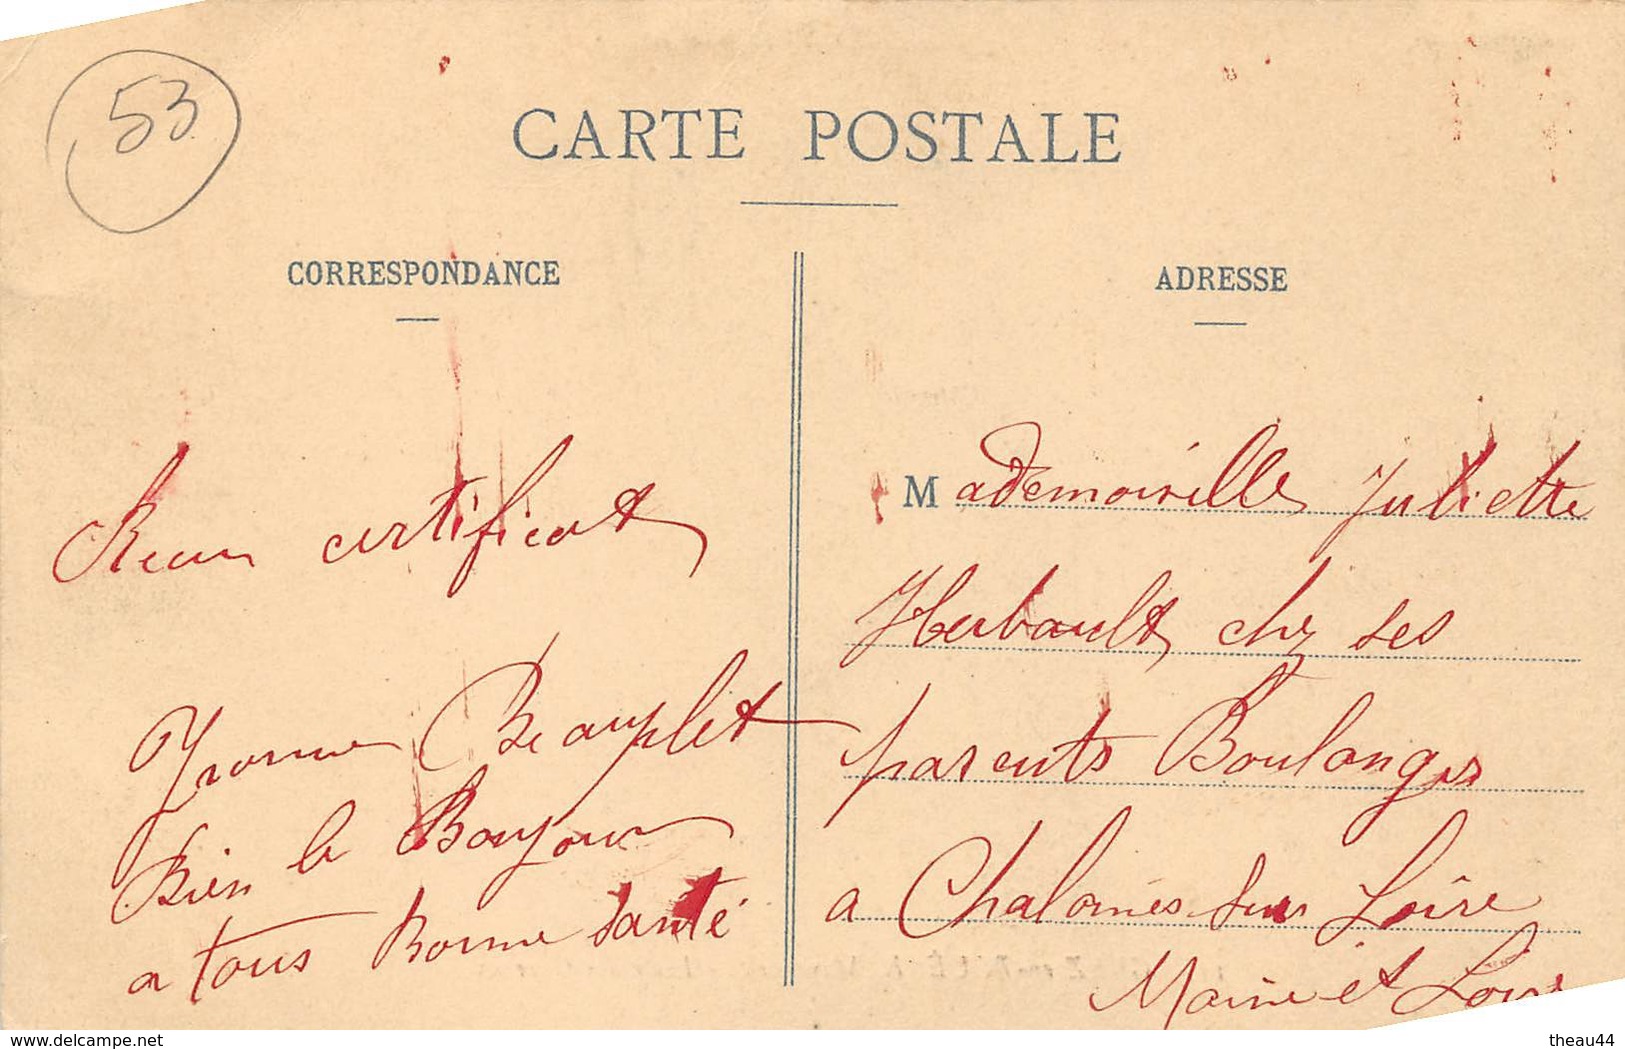 53
CARTE POSTALE
CORRESPONDANCE
ADRESSE
certificat
Yvonne Beauplet
Bien le Bonjour
a tous Bonne Santé
Mademoiselle Juliette
Herbault chz ses
parents Boulanger
a Chalonnes sur Loire
Maine et Loire
www.delcampe.net
theau44